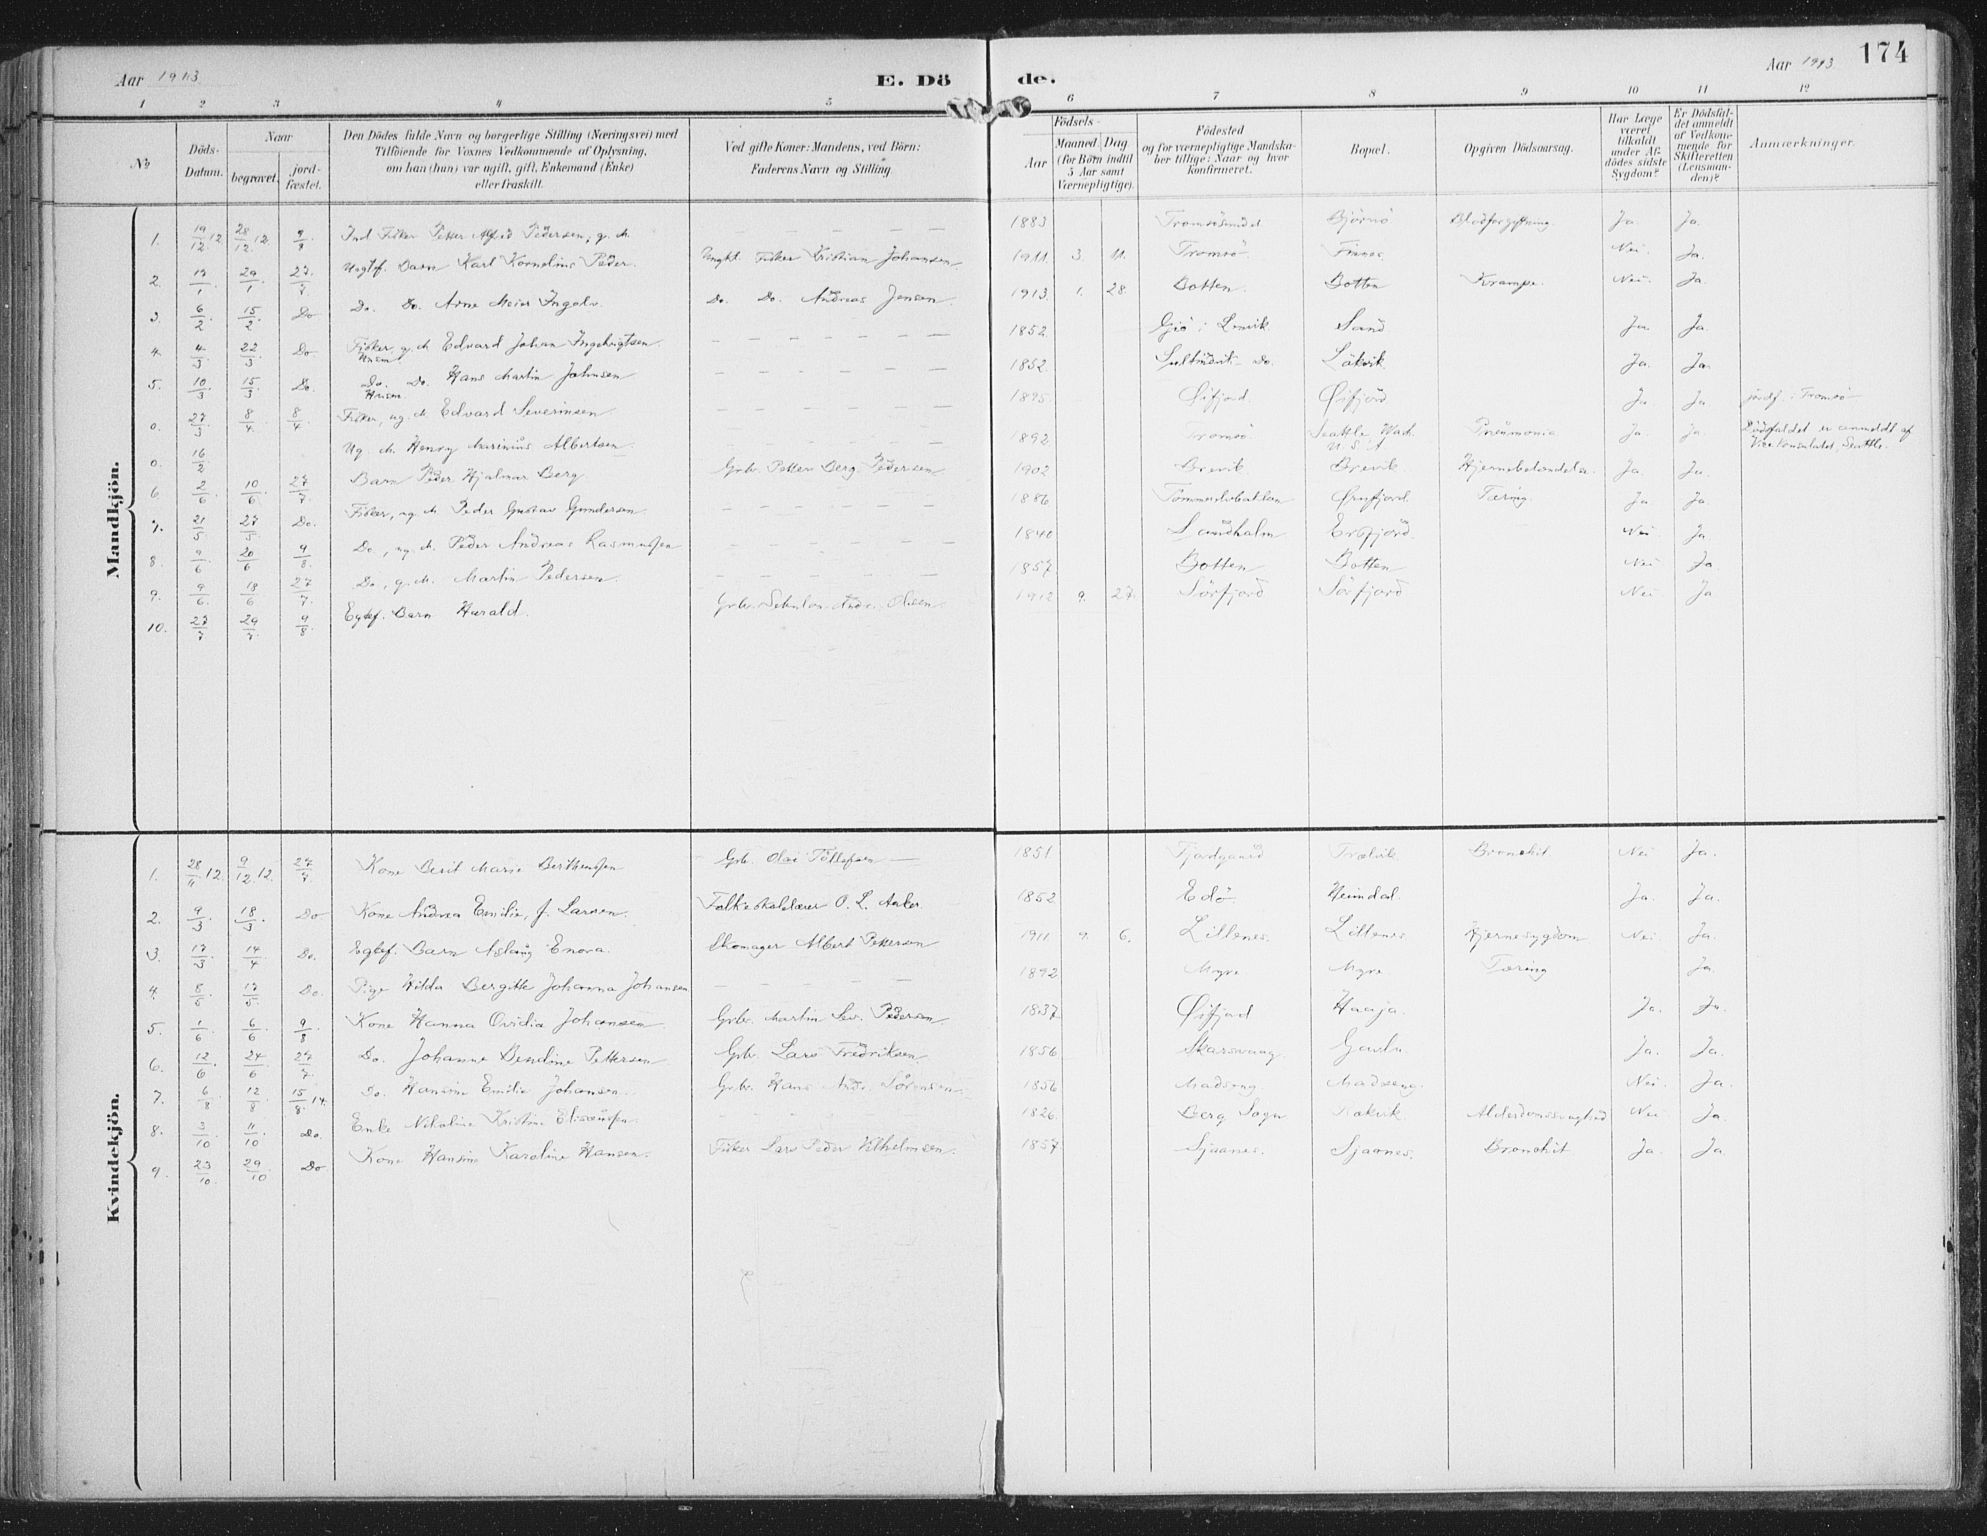 Aar 1913
E. Dö de.
Aar 1913 174
1 2 3 4 5 6 7 8 9 10 11 12
No
Döds-Datum.
Naar
begravet.
jord-fæstet.
Den Dödes fulde Navn og borgerlige Stilling (Næringsvei) med
Tilföiende for Voxnes Vedkommende af Oplysning,
om han (hun) var ugift, gift, Enkemand (Enke)
eller fraskilt.
Ved gifte Koner: Mandens, ved Börn:
Faderens Navn og Stilling
Födsels-
Aar
Maaned. Dag
(for Börn indtil
5 Aar samt
Værnepligtige).
Födested
og for værnepligtige Mandska-
ber tillige: Naar og hvor
konfirmeret.
Bopæl.
Opgiven Dödsaarsag.
Har Læge
været
tilkaldt
under Af-
dödes sidste
Sygdom?
Er Dödsfal-
det anmeldt
af Vedkom-
mende for
Skifteretten
(Lensman-
den)?
Anmærkninger.
Mandkjön.
1. 19/12 12 28/12 12. Ind. Fisker Petter Alfrid Pedersen, g. m. 1883 Tromsösundet Björnö Blodforgiftning Ja. Ja.
2. 17/1 29/1 27/7 Ungtf. Barn Karl Kornelius Peder. Ungkl. Fisker Kristian Johansen 1911. 3. 11. Tromsö. Finnes Nei. Ja.
3. 6/2 15/2 Do Do. Do. Arne Meier Ingolv. Do. Do. Andreas Jensen 1913. 1. 28. Botten. Botten Krampe. Nei. Ja.
4. 4/3 22/3 Do Fisker, g. m. Edvard Johan Ingebrigtsen 1852. Gjö i Lenvik Sand Ja. Ja.
5. 10/3 15/3 Do. Do. Do. Hans Martin Johnsen 1852. Do. Ja. Ja.
0. 27/3 8/4 8/4 Fisker, ug. m. Edvard Severinsen 1895. Öifjord. Öifjord Ja Ja jordf. i Tromsö
0. 16/2 Ug. m. Henry Marinius Albertsen 1892 Tromsö Seattle, Wash. U. S. A. Pneumonia Ja. Ja. Dödsfaldet er anmeldt af Vicekonsulatet, Seattle.
6. 2/6 10/6 27/7 Barn Peder Hjalmar Berg Grbr. Petter Berg Pedersen 1902 Brevik Brevik. Hjernebetændelse Ja. Ja.
7. 21/5 27/5 Do. Fisker, ug. m. Peder Gustav Gundersen 1886 Ørnfjord Tæring. Ja Ja
8. 9/6 20/6 9/8. Do, ug. m. Peder Andreas Rasmussen 1840 Sandholm Ersfjord. Nei Ja.
9. 9/6. 18/6 27/7. Do, g. m. Martin Pedersen 1857. Botten Botten Nei Ja
10. 27/7 29/7. 9/8. Egtef. Barn Harald. Grbr. Andr. Olsen 1912 9. 27. Sörfjord Sörfjord Nei Ja
Kvindekjön.
1. 28/11 12. 9/12 12. 27/7 Kone Berit Marie Berthenssen Grb. Olai Tollefsen 1851 Trælvik Bronchit Nei Ja.
2. 9/3 18/3 Do Kone Andrea Emilie, f. Larsen. Folkeskolelærer O. L. Aaker. 1852 Edö. Heimdal. Ja. Ja.
3. 17/3 14/4 Do. Egtef. Barn Aslaug Enora. Skomager Albert Pettersen 1911. 9. 6. Lillenes. Lillenes Hjernesygdom Nei. Ja.
4. 8/5 17/5. Do. Pige Hilda Bergitte Johanna Johansen 1892 Myre Myre Tæring Ja.
5. 1/6 6/6 9/8 Kone Hanna Ovidia Johansen Grbr. Martin Sev. Pedersen. 1837 Öifjord Haaja. Ja. Ja.
6. 12/6 24/6 27/7. Do. Johanne Bendine Pettersen Grbr. Lars Fredriksen 1856 Skarsvaag. Ja. Ja.
7. 6/8 12/8 15/8 14. Do. Hansine Emilie Johansen. Grbr. Hans Andr. Sörensen 1856 Madseng Madseng. Nei. Ja.
8. 3/10 11/10 Do. Enke Nikoline Kristine Eliseussen. 1826. Berg Sogn Alderdomssvaghed Nei Ja.
9. 23/10. 29/10 Do Kone Hansine Karoline Hansen. Fisker Lars Peder Vilhelmsen. 1857 Sjaanes. Sjaanes. Bronchit Ja. Ja